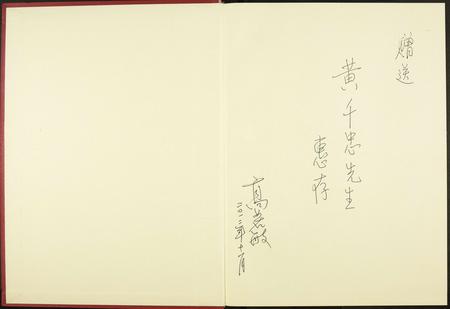 贈送
黄千忠先生
惠存
高 敏
二〇一二年十一月